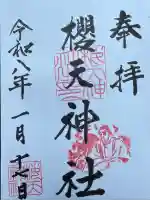 奉拝
櫻天神社
令和八年一月十七日